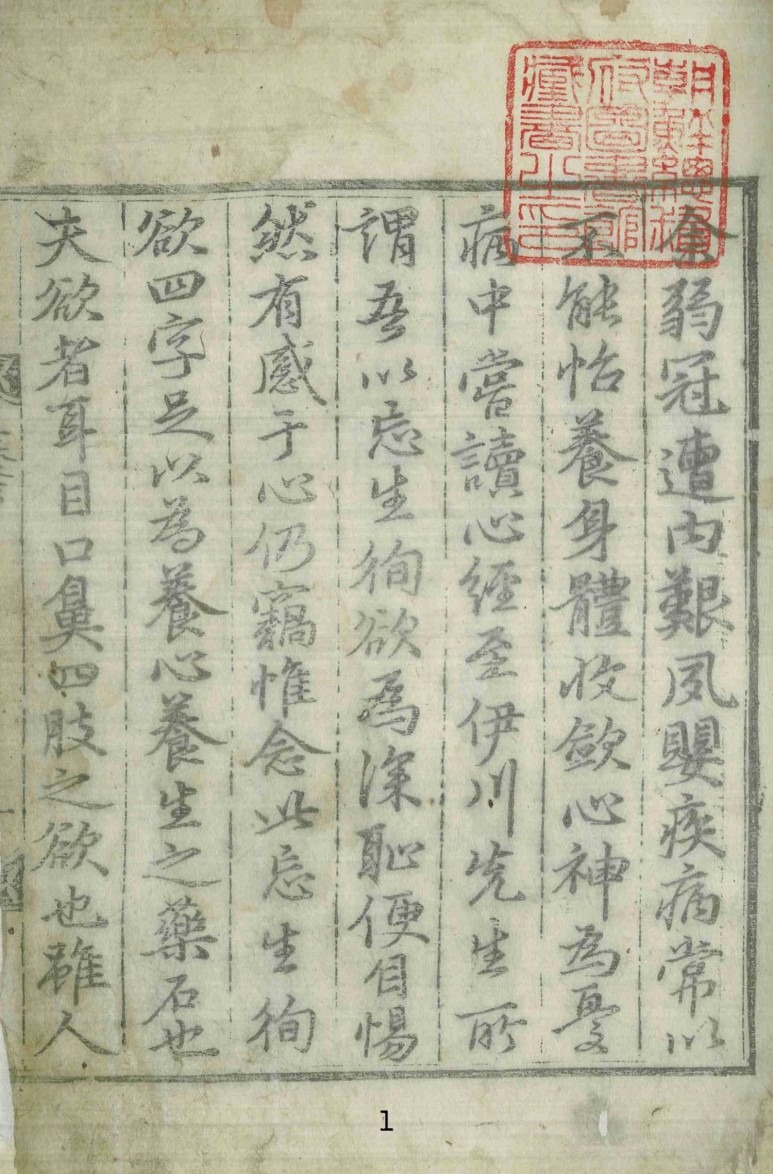 朝鮮總督
府圖書館
藏書之印
余弱冠遭內艱夙嬰疾病常以
不能怡養身體收斂心神為憂
病中嘗讀心經至伊川先生所
謂吾以忘生徇欲為深恥便自惕
然有感于心仍竊惟念此忘生徇
欲四字足以為養心養生之藥石也
夫欲者耳目口鼻四肢之欲也雖人
1